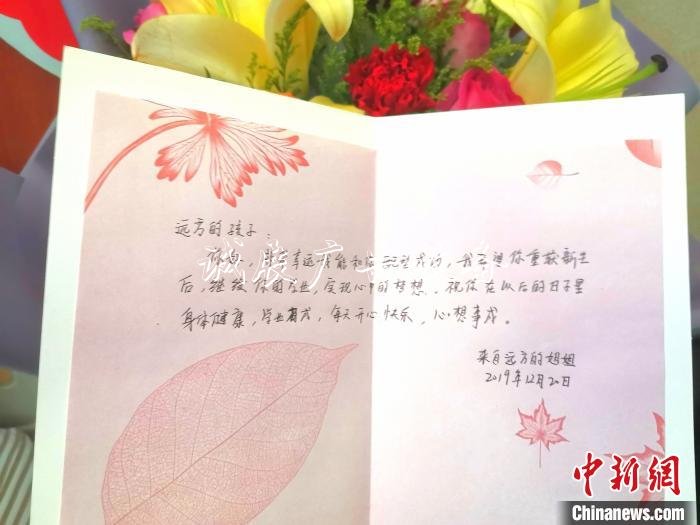 远方的孩子：
你好，很幸运我能和你配型成功，我希望你重获新生
后，继续你的学业，实现心中的梦想，祝你在以后的日子里
身体健康，学业有成，每天开心快乐，心想事成。
来自远方的姐姐
2019年12月20日
诚胶广
中新網
Chinanews.com